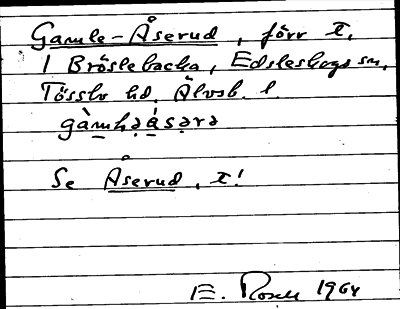 Gamle-Åserud, förr t.
1 Bröslebacka, Edsleskogs sn,
Tössbo hd, Älvsb. l.
gàmḷəá̊sərə
Se Åserud, t!
E. Rosell 1964